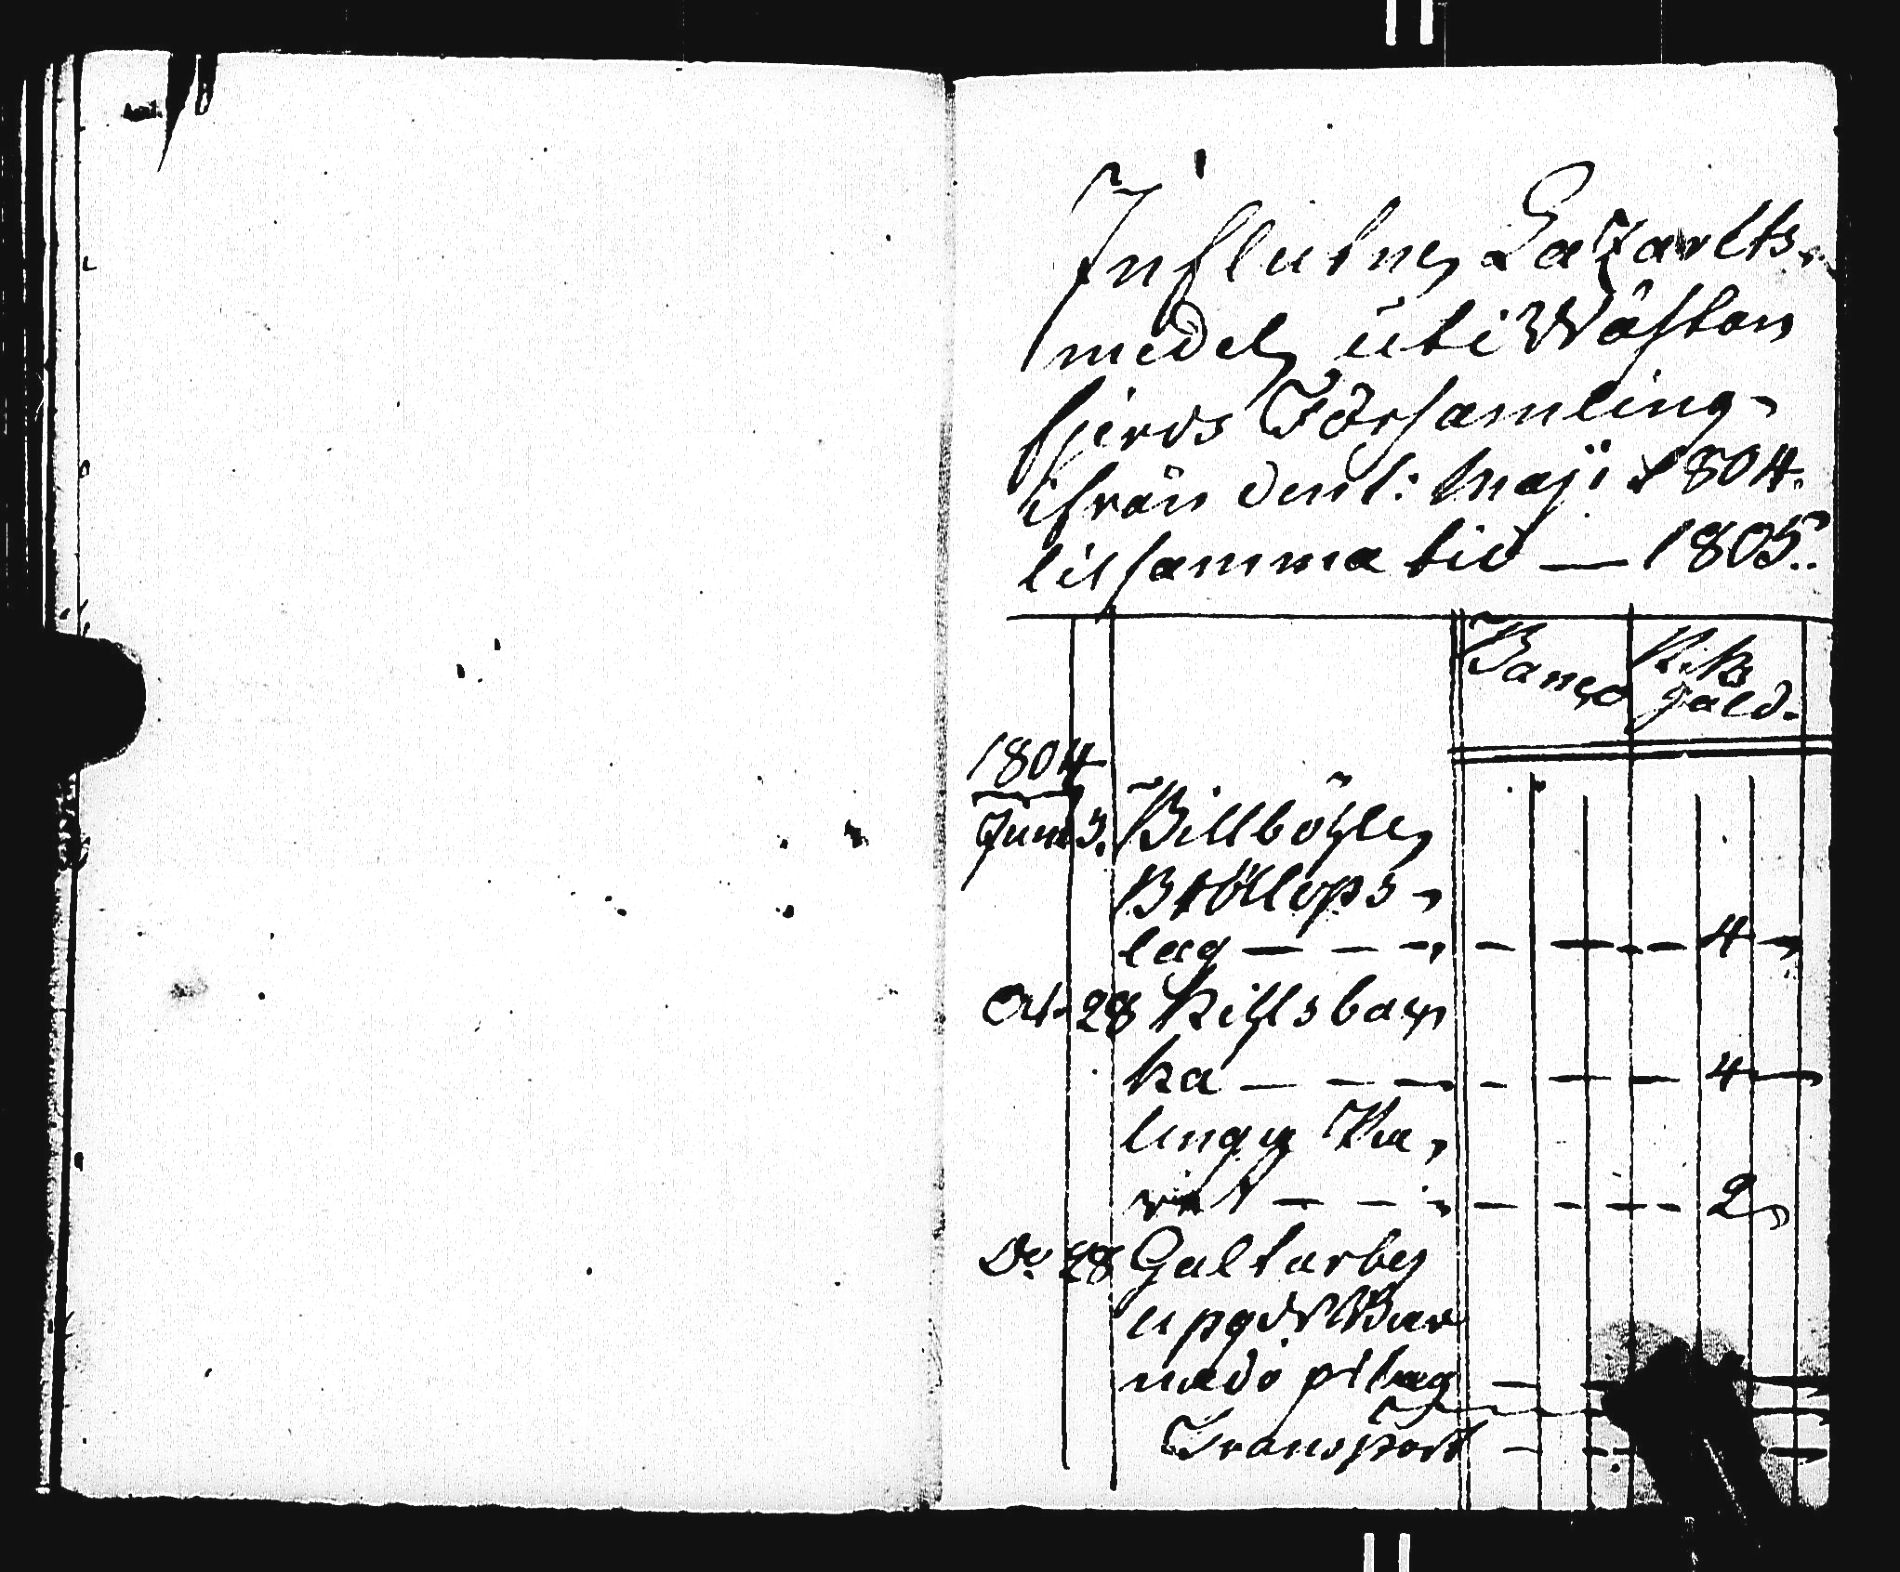 Influtne Lazaretts-
medel uti Wästan
fierds Församling
ifrån den 1: Maji 1804.
til samma tid — 1805.
Banco Riks
gäld.
1804
Juni 3. Billböhle
Bröllops-
lag — — — — — — 4
Oct. 28 Kihlsbac
ka — — — — — — 4
unga Ka-
— — — — — — 2
Do 28 Galtarby
upgdr Bar
nado
Transport — —